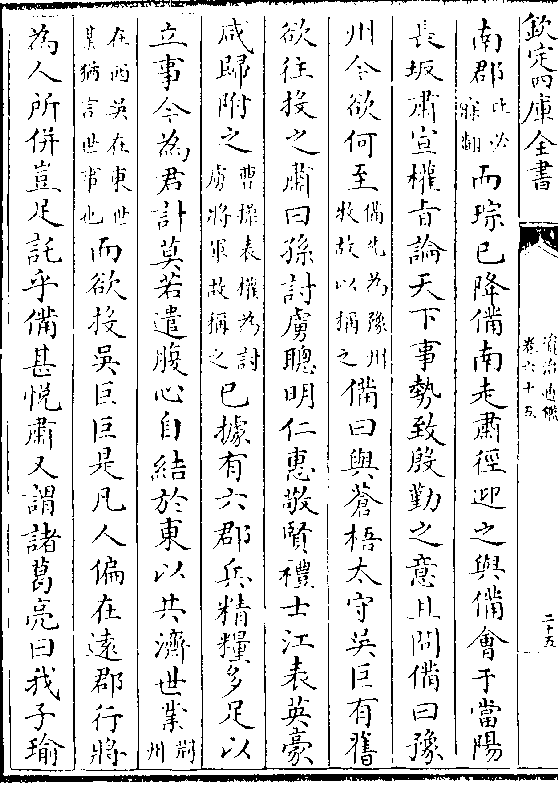 欽定四庫全書
資治通鑑
卷六十五
二十五
南郡比必寐翻而琮已降備南走肅徑迎之與備會于當陽
長坂肅宣權旨論天下事勢致殷勤之意且問備曰豫
州今欲何至備先為豫州牧故以稱之備曰與蒼梧太守吳巨有舊
欲往投之肅曰孫討虜聰明仁惠敬賢禮士江表英豪
咸歸附之曹操表權為討虜將軍故稱之已據有六郡兵精糧多足以
立事今為君計莫若遣腹心自結於東以共濟世業荆州
在西吳在東世業猶言世事也而欲投吳巨巨是凡人偏在遠郡行將
為人所併豈足託乎備甚悅肅又謂諸葛亮曰我子瑜